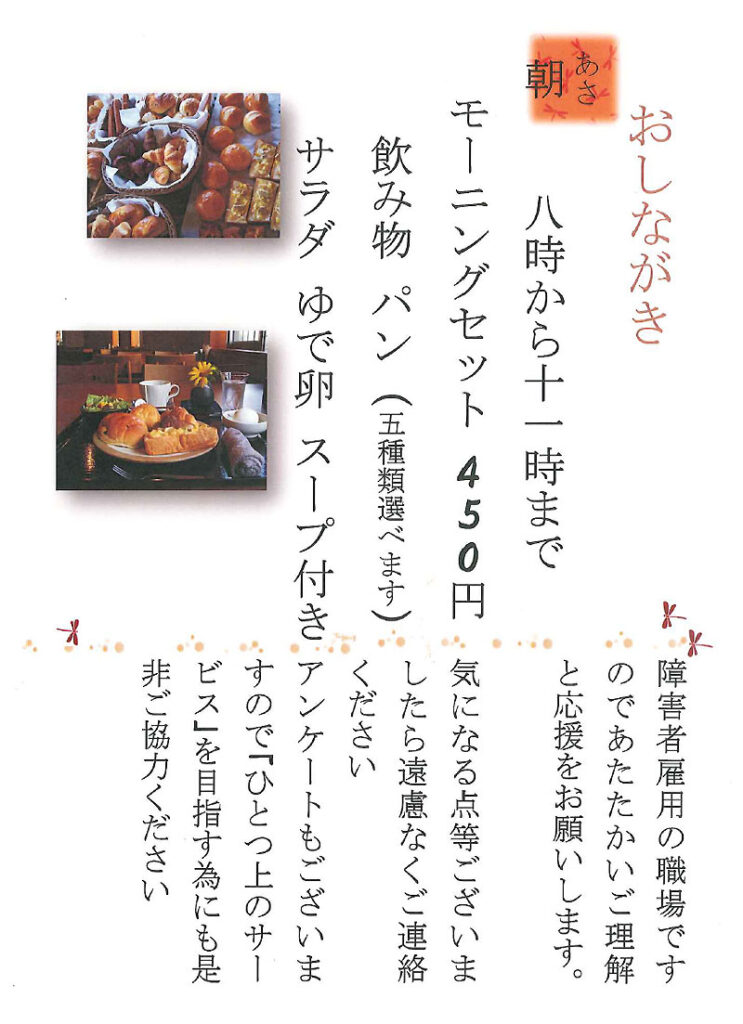 おしながき
あさ
朝
八時から十一時まで
モーニングセット 450円
飲み物 パン (五種類選べます)
サラダ ゆで卵 スープ付き
障害者雇用の職場です
のであたたかいご理解
と応援をお願いします。
気になる点等ございま
したら遠慮なくご連絡
ください
アンケートもございま
すので『ひとつ上のサー
ビス』を目指す為にも是
非ご協力ください